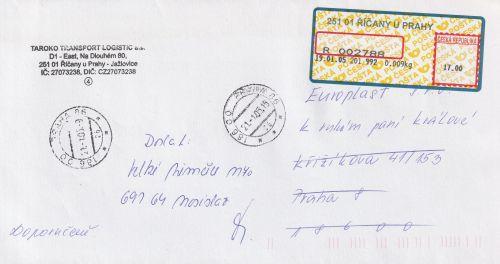 TAROKO TRANSPORT LOGISTIC a.s.
D1 - East, Na Dlouhém 80,
251 01 Říčany u Prahy - Jažlovice
IČ: 27073238, DIČ: CZ27073238
4
251 01 ŘÍČANY U PRAHY
R 002788
19.01.05 201.992 0.009kg
ČESKÁ REPUBLIKA
17.00
ČESKÁ POŠTA
PRAHA 86
186 00
PRAHA 86
186 00
Europlast
k rukám paní Králové
Křižíkova 41/153
Praha 8
18600
691 64 Nosislav
Doporučeně